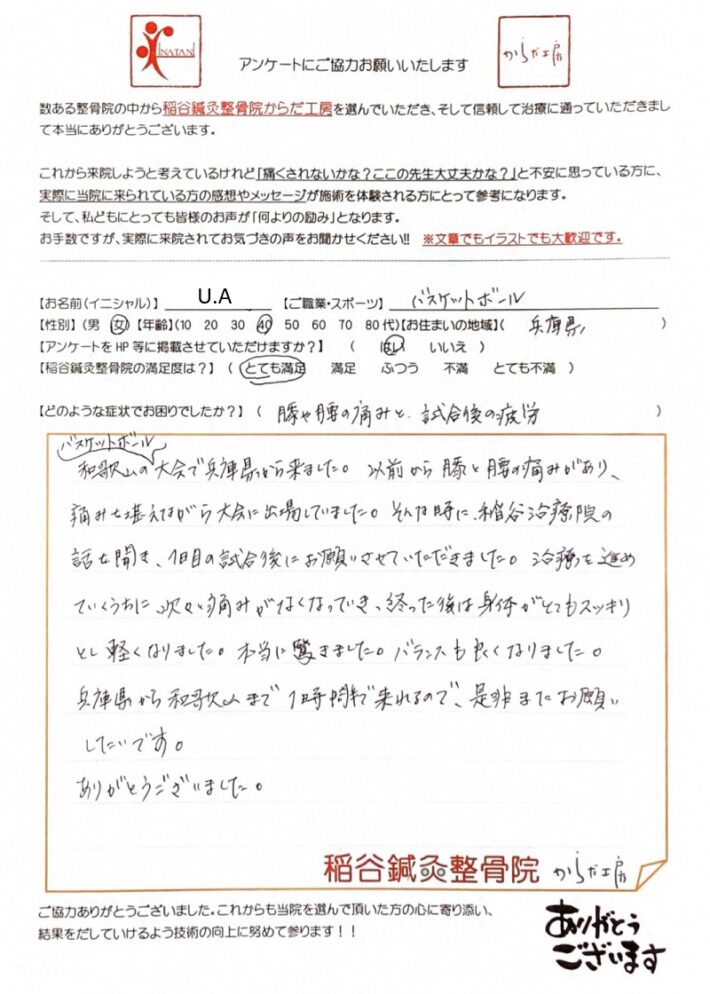 INATANI
からだ工房
アンケートにご協力お願いいたします
数ある整骨院の中から稲谷鍼灸整骨院からだ工房を選んでいただき、そして信頼して治療に通っていただきまし
て本当にありがとうございます。
これから来院しようと考えているけれど「痛くされないかな？ここの先生大丈夫かな？」と不安に思っている方に、
実際に当院に来られている方の感想やメッセージが施術を体験される方にとって参考になります。
そして、私どもにとっても皆様のお声が「何よりの励み」となります。
お手数ですが、実際に来院されてお気づきの声をお聞かせください!! ※文章でもイラストでも大歓迎です。
【お名前（イニシャル）】 U.A 【ご職業・スポーツ】 バスケットボール
【性別】（男 女）【年齢】（10 20 30 40 50 60 70 80代）【お住まいの地域】（ 兵庫県 ）
【アンケートをHP等に掲載させていただけますか？】 （ はい いいえ ）
【稲谷鍼灸整骨院の満足度は？】（ とても満足 満足 ふつう 不満 とても不満 ）
【どのような症状でお困りでしたか？】（ 膝や腰の痛みと、試合後の疲労 ）
バスケットボール
和歌山の大会で兵庫県から来ました。以前から膝と腰の痛みがあり、
痛みを堪えながら大会に出場していました。そんな時に、稲谷治療院の
話を聞き、1日目の試合後にお願いさせていただきました。治療を進め
ていくうちに、次々と痛みがなくなっていき、終った後は身体がとてもスッキリ
とし軽くなりました。本当に驚きました。バランスも良くなりました。
兵庫県から和歌山まで1時間半で来れるので、是非またお願い
したいです。
ありがとうございました。
稲谷鍼灸整骨院 からだ工房
ご協力ありがとうございました。これからも当院を選んで頂いた方の心に寄り添い、
結果をだしていけるよう技術の向上に努めて参ります！！
ありがとう
ございます